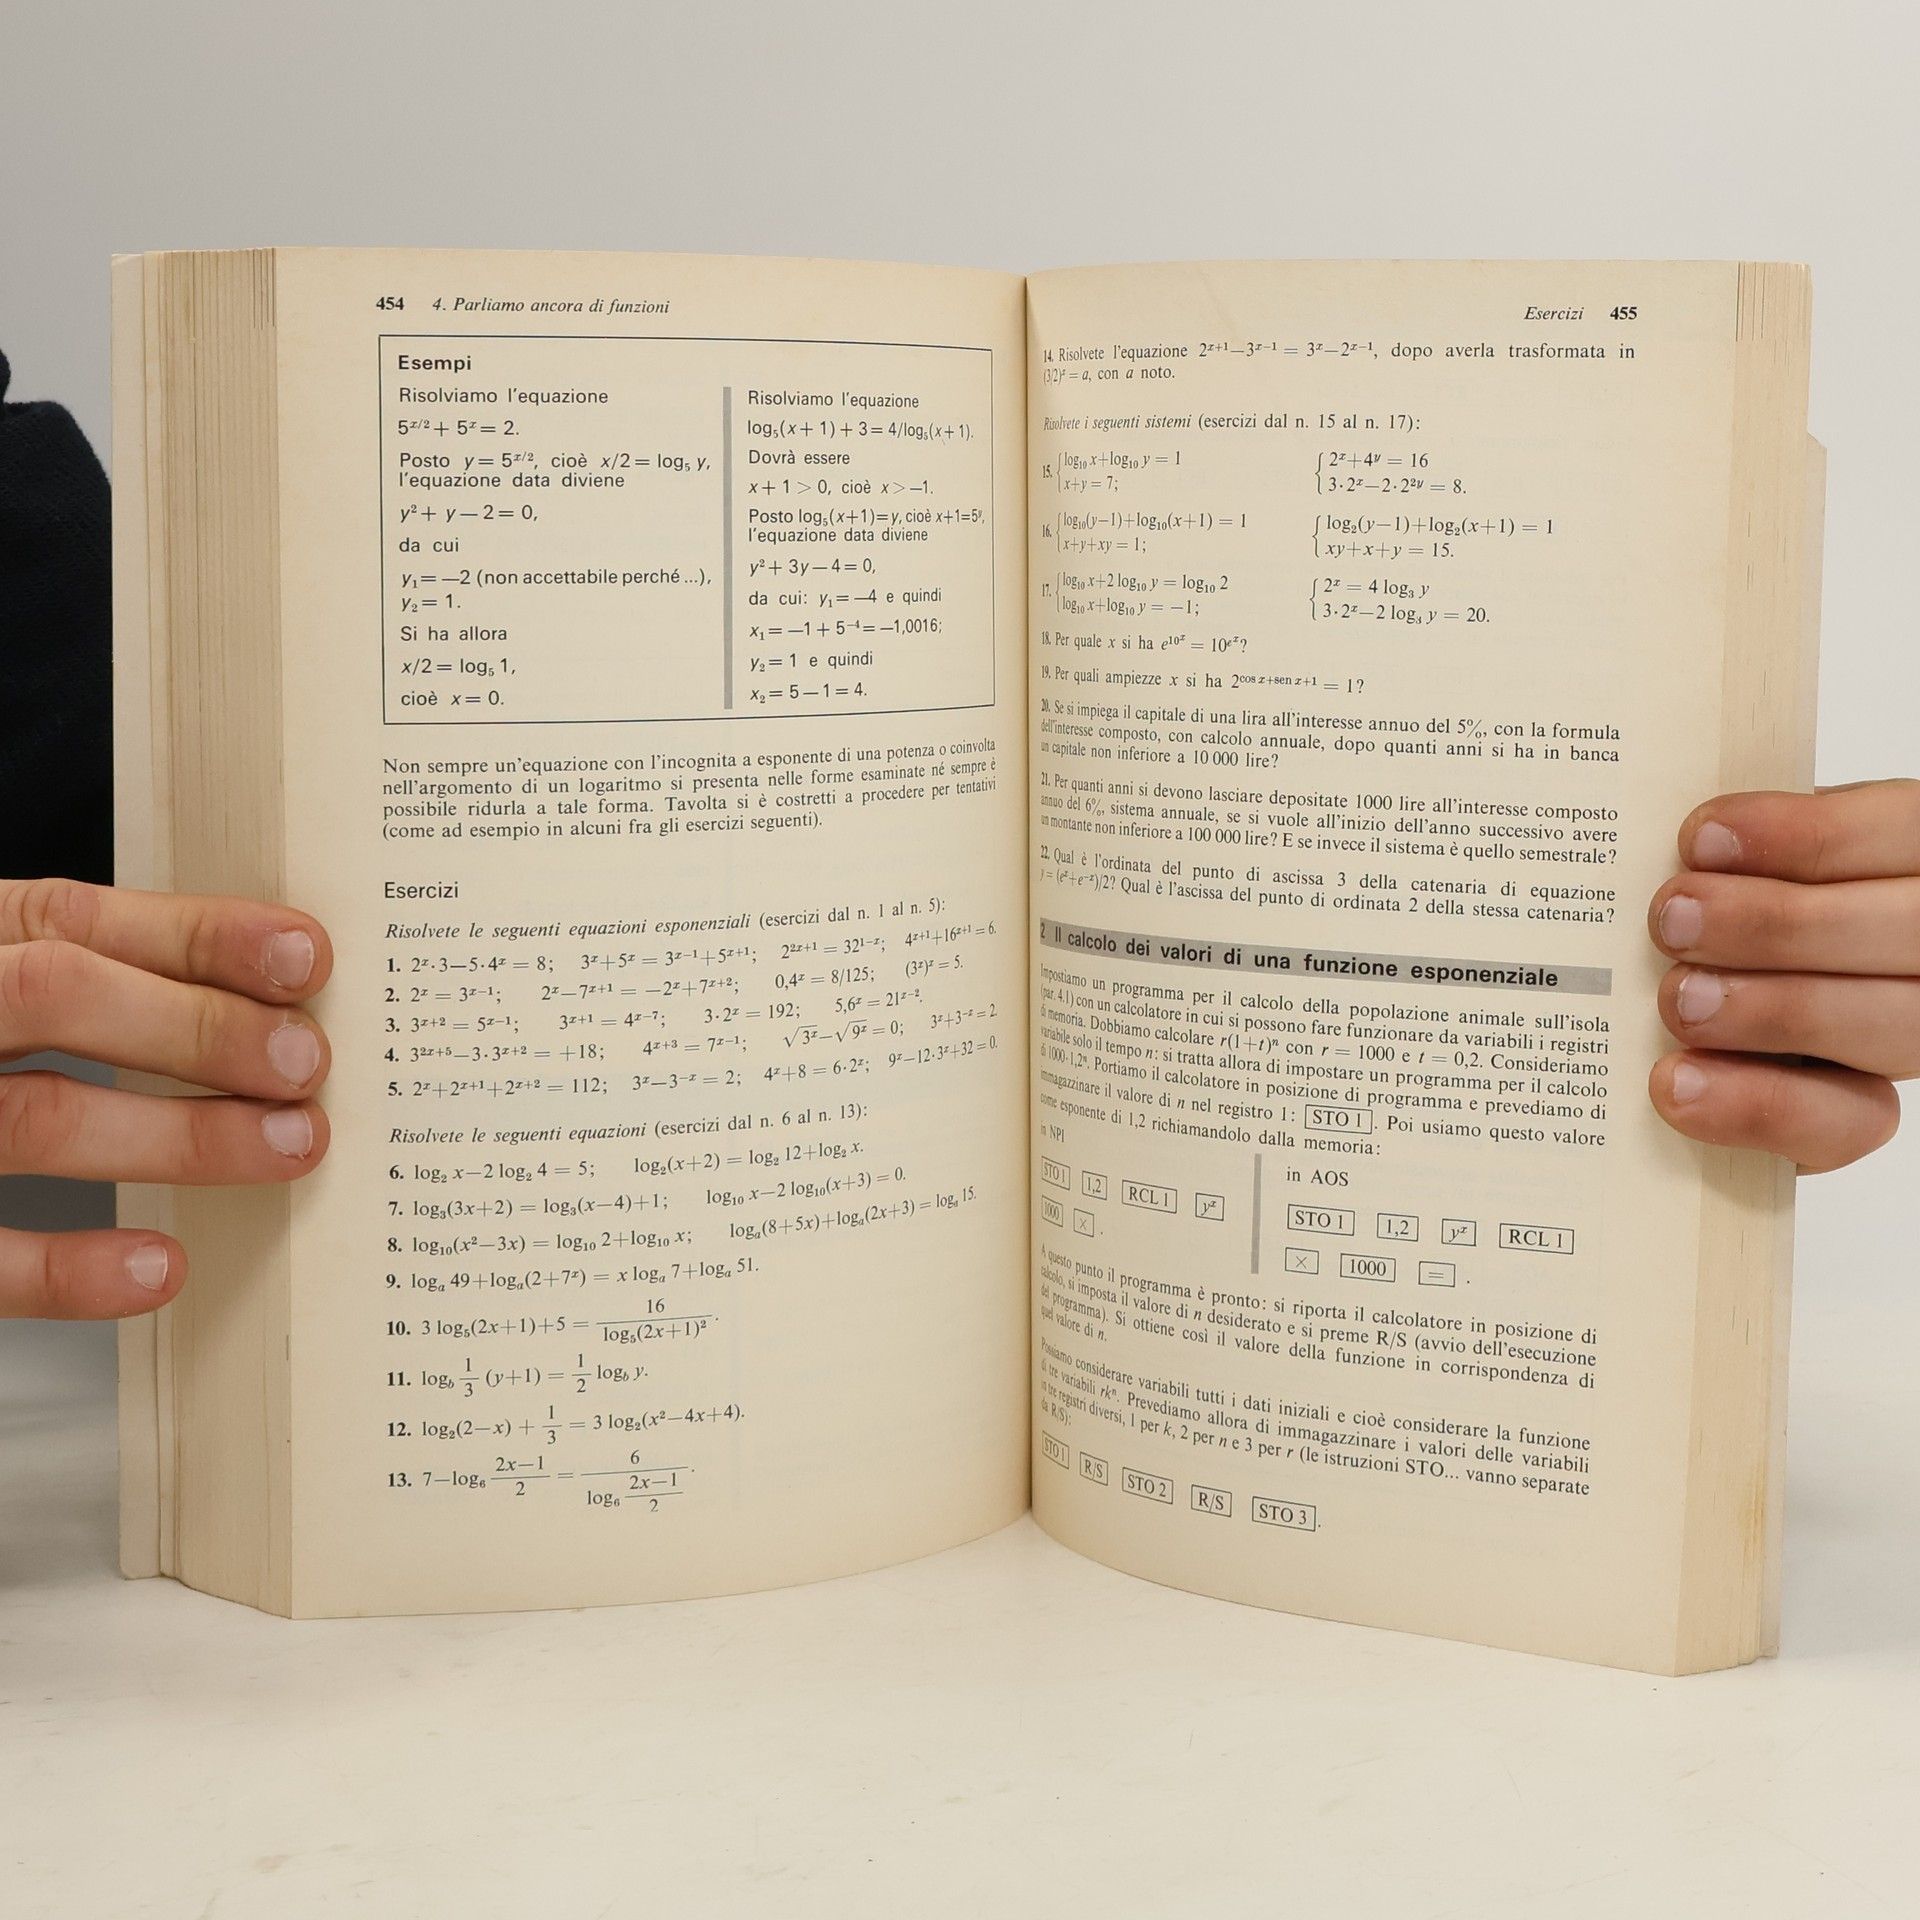 454 4. Parliamo ancora di funzioni
Esempi
Risolviamo l'equazione
5^{x/2} + 5^x = 2.
Posto y = 5^{x/2}, cioè x/2 = log₅ y,
l'equazione data diviene
y² + y — 2 = 0,
da cui
y₁ = —2 (non accettabile perché ...),
y₂ = 1.
Si ha allora
x/2 = log₅ 1,
cioè x = 0.
Risolviamo l'equazione
log₅(x + 1) + 3 = 4/log₅(x + 1).
Dovrà essere
x + 1 > 0, cioè x > —1.
Posto log₅(x+1)=y, cioè x+1=5^y,
l'equazione data diviene
y² + 3y — 4 = 0,
da cui: y₁ = —4 e quindi
x₁ = —1 + 5^{—4} = —1,0016;
y₂ = 1 e quindi
x₂ = 5 — 1 = 4.
Non sempre un'equazione con l'incognita a esponente di una potenza o coinvolta
nell'argomento di un logaritmo si presenta nelle forme esaminate né sempre è
possibile ridurla a tale forma. Tavolta si è costretti a procedere per tentativi
(come ad esempio in alcuni fra gli esercizi seguenti).
Esercizi
Risolvete le seguenti equazioni esponenziali (esercizi dal n. 1 al n. 5):
1. 2^x·3—5·4^x = 8; 3^x+5^x = 3^{x—1}+5^{x+1}; 2^{2x+1} = 32^{1—x}; 4^{x+1}+16^{x+1} = 6.
2. 2^x = 3^{x—1}; 2^x—7^{x+1} = —2^x+7^{x+2}; 0,4^x = 8/125; (3^x)^x = 5.
3. 3^{x+2} = 5^{x—1}; 3^{x+1} = 4^{x—7}; 3·2^x = 192; 5,6^x = 21^{x—2}.
4. 3^{2x+5}—3·3^{x+2} = +18; 4^{x+3} = 7^{x—1}; √3^x—√9^x = 0; 3^x+3^{—x} = 2.
5. 2^x+2^{x+1}+2^{x+2} = 112; 3^x—3^{—x} = 2; 4^x+8 = 6·2^x; 9^x—12·3^x+32=0.
Risolvete le seguenti equazioni (esercizi dal n. 6 al n. 13):
6. log₂ x—2 log₂ 4 = 5; log₂(x+2) = log₂ 12+log₂ x.
7. log₃(3x+2) = log₃(x—4)+1; log₁₀ x—2 log₁₀(x+3) = 0.
8. log₁₀(x²—3x) = log₁₀ 2+log₁₀ x; logₐ(8+5x)+logₐ(2x+3) = logₐ 15.
9. logₐ 49+logₐ(2+7^x) = x logₐ 7+logₐ 51.
10. 3 log₅(2x+1)+5 = 16/log₅(2x+1)².
11. log_b 1/3 (y+1) = 1/2 log_b y.
12. log₂(2—x) + 1/3 = 3 log₂(x²—4x+4).
13. 7—log₆ (2x—1)/2 = 6/(log₆ (2x—1)/2).
Esercizi 455
14. Risolvete l'equazione 2^{x+1}—3^{x—1} = 3^x—2^{x—1}, dopo averla trasformata in
(3/2)^x = a, con a noto.
Risolvete i seguenti sistemi (esercizi dal n. 15 al n. 17):
15. { log₁₀ x+log₁₀ y = 1 { 2^x+4^y = 16
x+y = 7; 3·2^x—2·2^{2y} = 8.
16. { log₁₀(y—1)+log₁₀(x+1) = 1 { log₂(y—1)+log₂(x+1) = 1
x+y+xy = 1; xy+x+y = 15.
17. { log₁₀ x+2 log₁₀ y = log₁₀ 2 { 2^x = 4 log₃ y
log₁₀ x+log₁₀ y = —1; 3·2^x—2 log₃ y = 20.
18. Per quale x si ha e^{10^x} = 10^{e^x}?
19. Per quali ampiezze x si ha 2^{cos x+sen x+1} = 1?
20. Se si impiega il capitale di una lira all'interesse annuo del 5%, con la formula
dell'interesse composto, con calcolo annuale, dopo quanti anni si ha in banca
un capitale non inferiore a 10 000 lire?
21. Per quanti anni si devono lasciare depositate 1000 lire all'interesse composto
annuo del 6%, sistema annuale, se si vuole all'inizio dell'anno successivo avere
un montante non inferiore a 100 000 lire? E se invece il sistema è quello semestrale?
22. Qual è l'ordinata del punto di ascissa 3 della catenaria di equazione
y = (e^x+e^{—x})/2? Qual è l'ascissa del punto di ordinata 2 della stessa catenaria?
2 Il calcolo dei valori di una funzione esponenziale
Impostiamo un programma per il calcolo della popolazione animale sull'isola
(par. 4.1) con un calcolatore in cui si possono fare funzionare da variabili i registri
di memoria. Dobbiamo calcolare r(1+t)^n con r = 1000 e t = 0,2. Consideriamo
variabile solo il tempo n: si tratta allora di impostare un programma per il calcolo
di 1000·1,2^n. Portiamo il calcolatore in posizione di programma e prevediamo di
immagazzinare il valore di n nel registro 1: STO 1. Poi usiamo questo valore
come esponente di 1,2 richiamandolo dalla memoria:
in NPI
STO 1 1,2 RCL 1 y^x
1000 ×.
in AOS
STO 1 1,2 y^x RCL 1
× 1000 = .
A questo punto il programma è pronto: si riporta il calcolatore in posizione di
calcolo, si imposta il valore di n desiderato e si preme R/S (avvio dell'esecuzione
del programma). Si ottiene così il valore della funzione in corrispondenza di
quel valore di n.
Possiamo considerare variabili tutti i dati iniziali e cioè considerare la funzione
di tre variabili rk^n. Prevediamo allora di immagazzinare i valori delle variabili
in tre registri diversi, 1 per k, 2 per n e 3 per r (le istruzioni STO... vanno separate
da R/S):
STO 1 R/S STO 2 R/S STO 3.